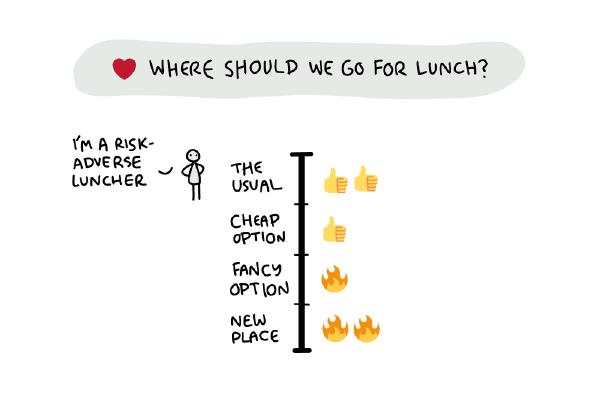 WHERE SHOULD WE GO FOR LUNCH?
I'M A RISK-
ADVERSE
LUNCHER
THE
USUAL
CHEAP
OPTION
FANCY
OPTION
NEW
PLACE